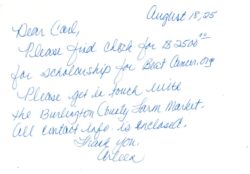 August 18, 25
Dear Carl,
Please find check for $2500.00
for scholarship for Beat Cancer.org
Please get in touch with
the Burlington County Farm Market.
All contact info is enclosed.
Thank you.
Arleen